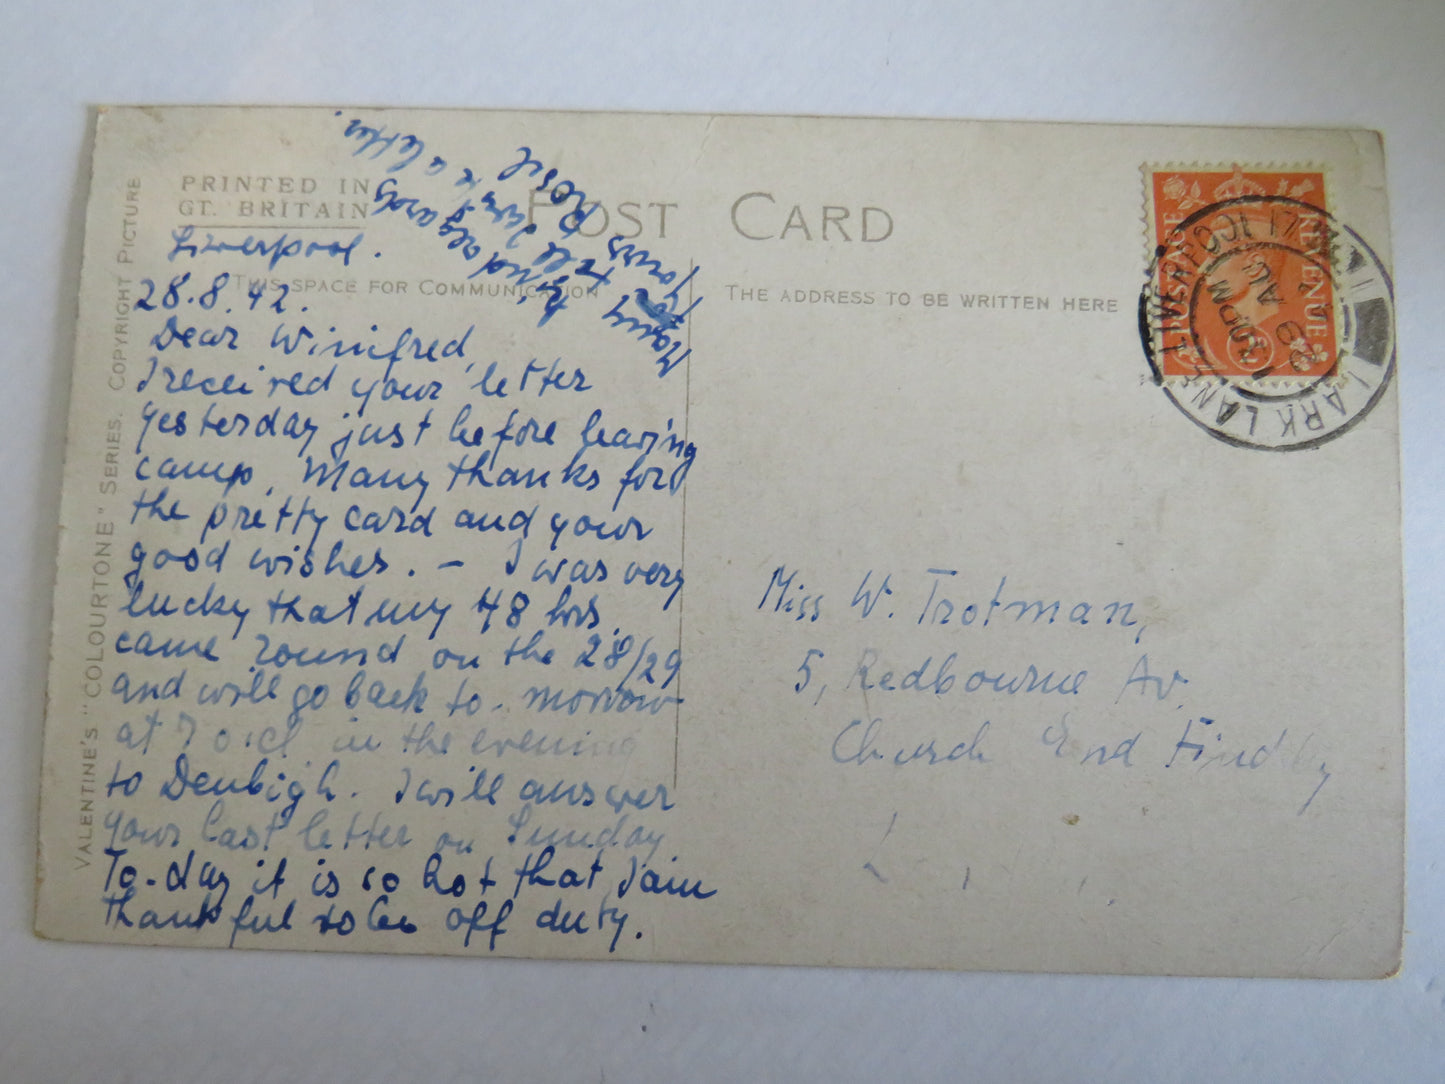 VALENTINE'S "COLOURTONE" SERIES. COPYRIGHT PICTURE
PRINTED IN
GT. BRITAIN
POST CARD
THIS SPACE FOR COMMUNICATION
THE ADDRESS TO BE WRITTEN HERE
Liverpool.
28.8.42.
Dear Winifred,
I received your letter
yesterday just before leaving
camp. Many thanks for
the pretty card and your
good wishes. – I was very
lucky that my 48 hrs.
came round on the 28/29
and will go back to-morrow
at 7 o'cl in the evening
to Denbigh. I will answer
your last letter on Sunday
To-day it is so hot that I am
thankful to be off duty.
Many kind regards
Yours
Rosie
a letter.
Miss W. Trotman,
5, Redbourne Av.
Church End Findley
POSTAGE REVENUE
LARK LANE LIVERPOOL 17
PM
29 AU